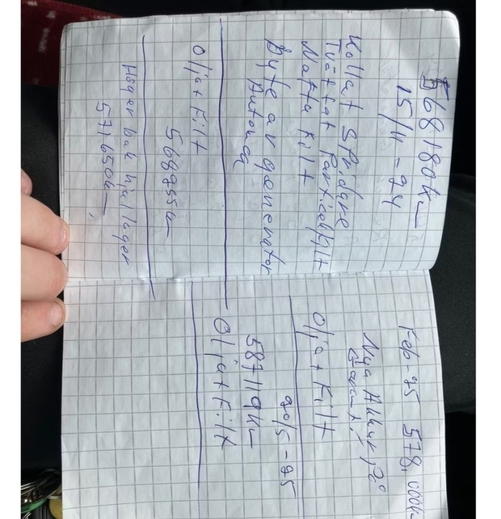 568180km
15/11-24
Kollat Spridare
Tvättat Partikelfilt
Natta Filt
Byte av generator
Autoaq
Olja + Filt
568955km
Höger bak hjul lager
571650km
Feb-25 578,000km
Nya
Olja + Filt
20/5-25
587119km
Olja + Filt